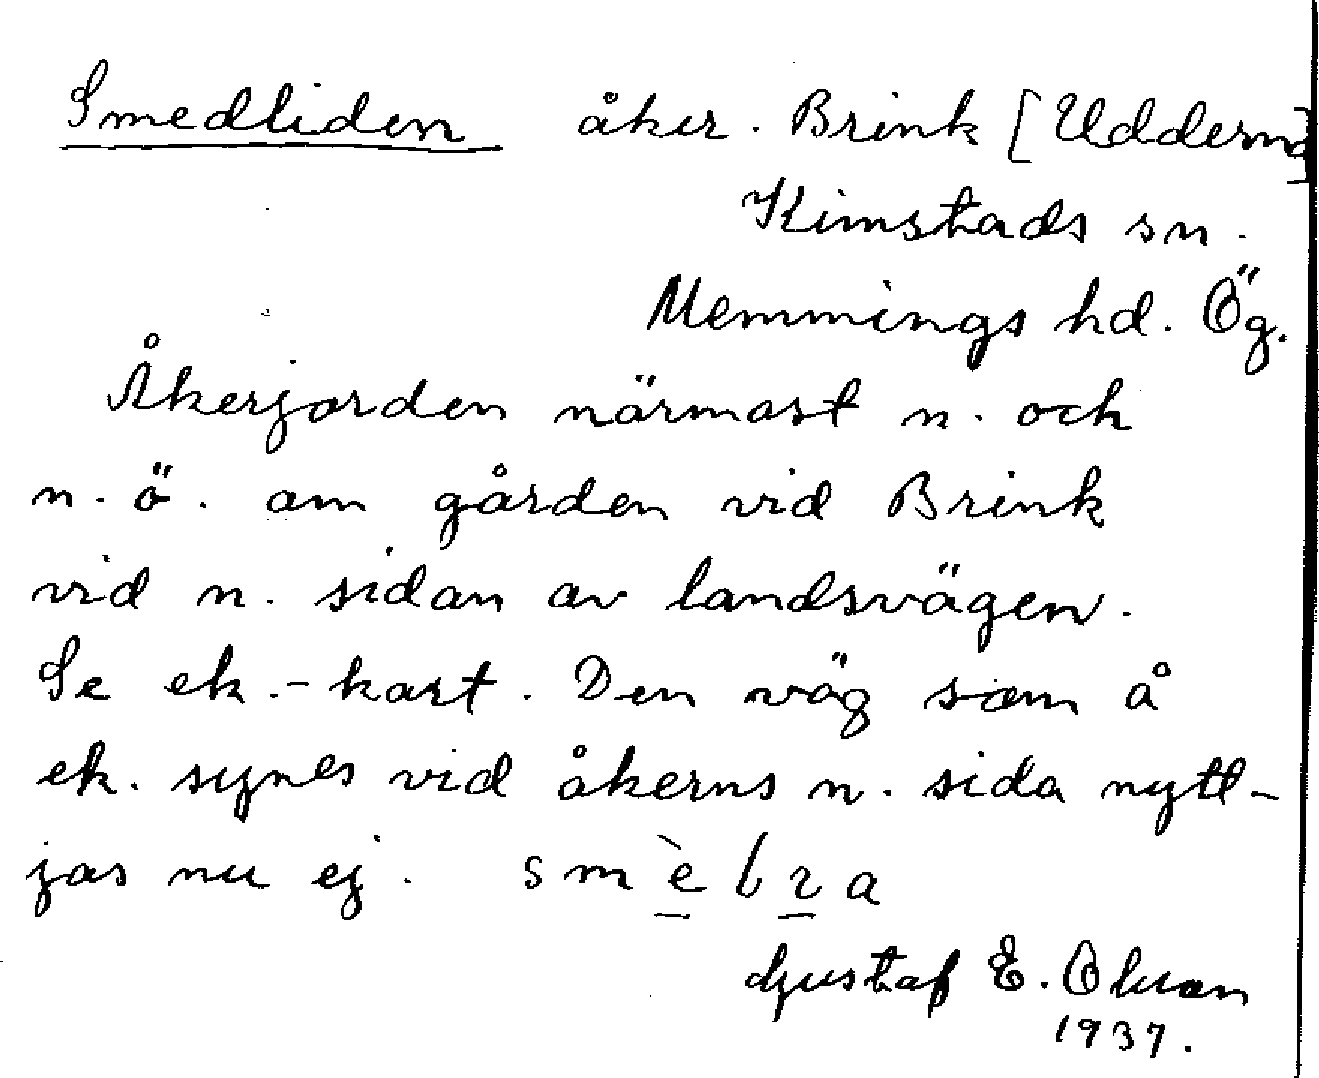 Smedliden åker. Brink [Udderna]
Kimstads sn.
Memmings hd. Ög.
Åkerjorden närmast n. och
n.ö. om gården vid Brink
vid n. sidan av landsvägen.
Se ek.-kart. Den väg som å
ek. synes vid åkerns n. sida nytt-
jas nu ej.
Gustaf E. Olsson
1937.